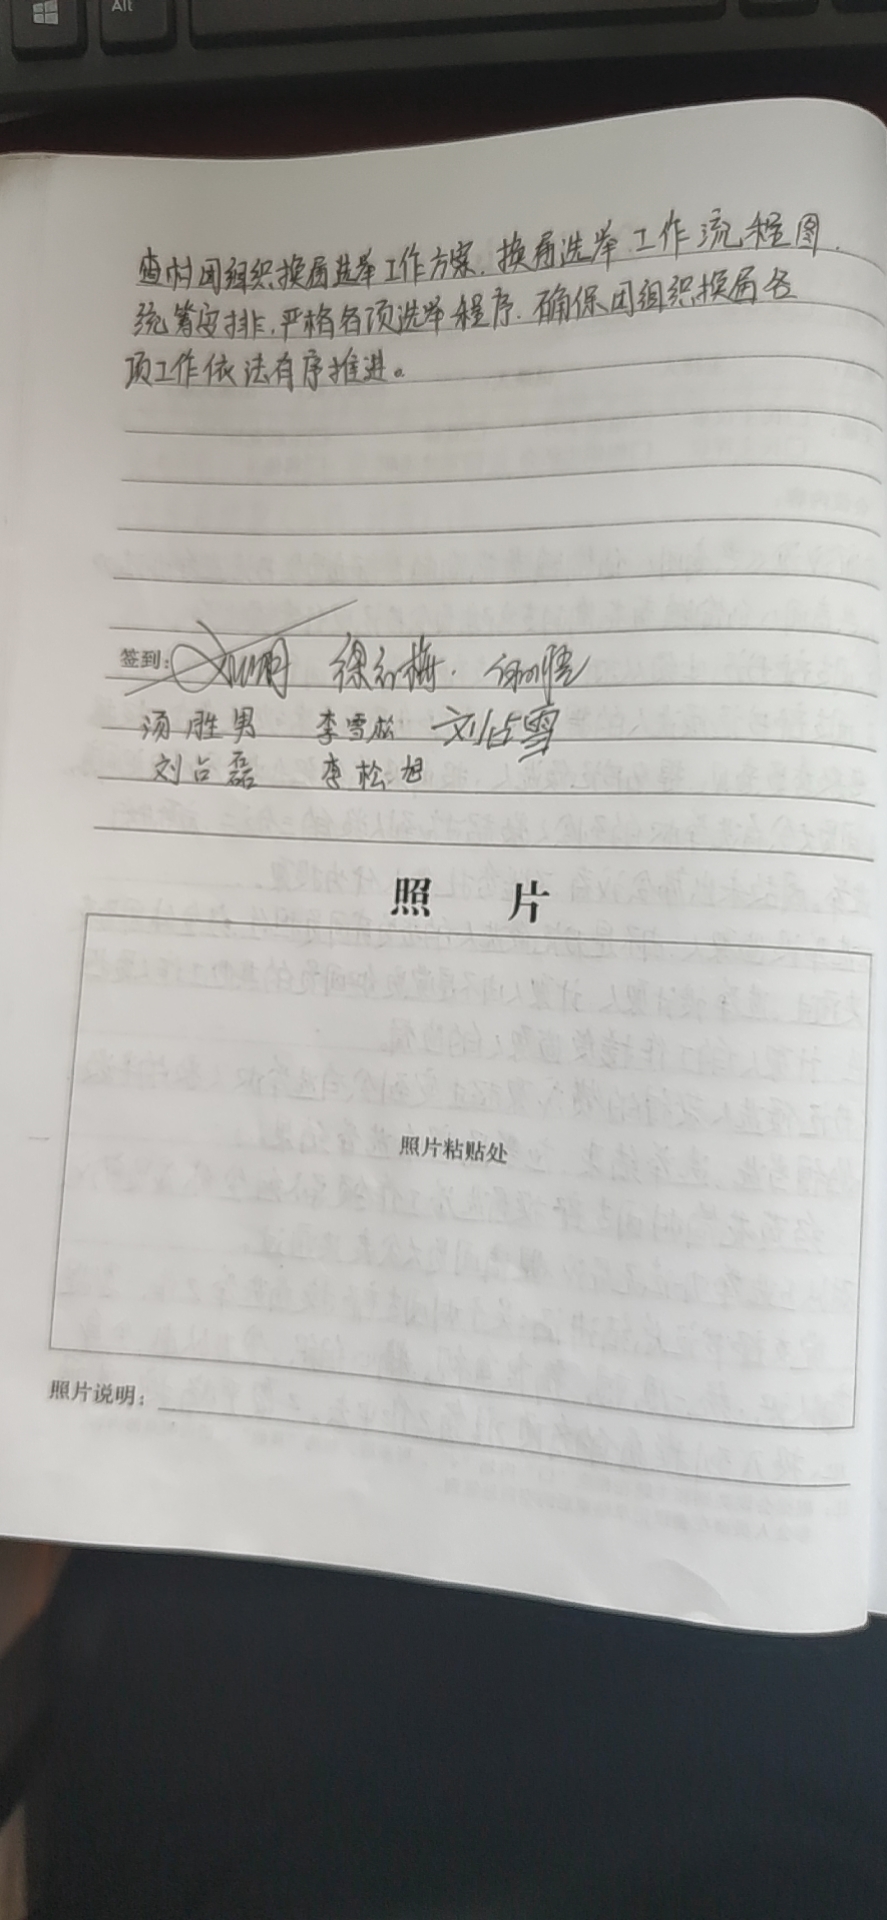 Alt
村团组织换届选举工作方案、换届选举工作流程图,
统筹安排,严格各项选举程序,确保团组织换届各
项工作依法有序推进。
签到:
汤胜男 李雪松 刘占雪
刘占磊 李松旭
照 片
照片粘贴处
照片说明: